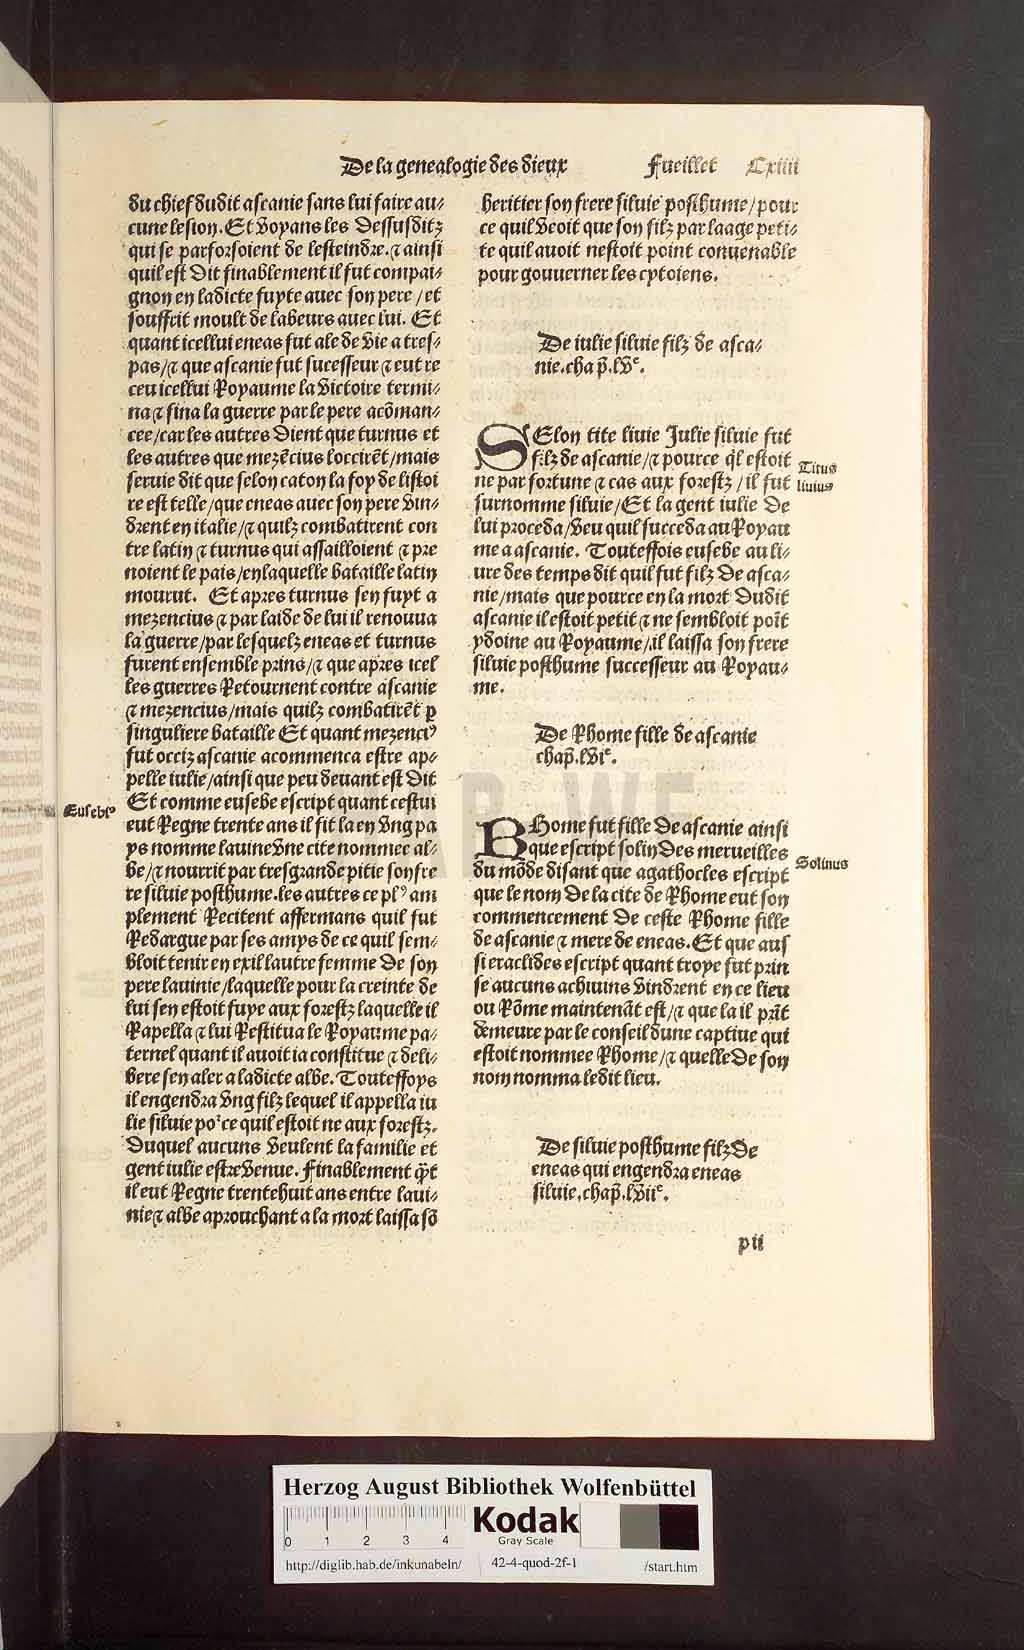 De la genealogie des dieux Fueillet Cxiiii
du chief dudit ascanie sans lui faire au-
cune lesion. Et voyans les dessusditz
qui se parforsoient de lesteindre. ⁊ ainsi
quil est dit finablement il fut compai-
gnon en ladicte fuyte auec son pere / et
souffrit moult de labeurs auec lui. Et
quant icellui eneas fut ale de vie a tres-
pas / ⁊ que ascanie fut sucesseur ⁊ eut re
ceu icellui Royaume la victoire termi-
na ⁊ fina la guerre par le pere acõman-
cee / car les autres dient que turnus et
les autres que mezẽcius loccirẽt / mais
seruie dit que selon caton la foy de listoi
re est telle / que eneas auec son pere vin-
drent en italie / ⁊ quilz combatirent con
tre latin ⁊ turnus qui assailloient ⁊ pre
noient le pais / en laquelle bataille latin
mourut. Et apres turnus sen fuyt a
mezencius ⁊ par laide de lui il renouua
la guerre / par lesquelz eneas et turnus
furent ensemble prins / ⁊ que apres icel
les guerres Retournent contre ascanie
⁊ mezencius / mais quilz combatirẽt ꝑ
singuliere bataille Et quant mezenciꝰ
fut occiz ascanie acommenca estre ap-
pelle iulie / ainsi que peu deuant est dit
Et comme eusebe escript quant cestui
eut Regne trente ans il fit la en vng pa
ys nomme lauine vne cite nommee al-
be / ⁊ nourrit par tresgrande pitie son fre
re siluie posthume. les autres ce plꝰ am
plement Recitent affermans quil fut
Redargue par ses amys de ce quil sem-
bloit tenir en exil lautre femme de son
pere lauinie / laquelle pour la creinte de
lui sen estoit fuye aux forestz laquelle il
Rapella ⁊ lui Restitua le Royaume pa-
ternel quant il auoit ia constitue ⁊ deli-
bere sen aler a ladicte albe. Touteffoys
il engendra vng filz lequel il appella iu
lie siluie poᷣce quil estoit ne aux forestz.
Duquel aucuns veulent la familie et
gent iulie estre venue. Finablement q̃t
il eut Regne trentehuit ans entre laui-
nie ⁊ albe aprouchant a la mort laissa sõ
Eusebiꝰ
heritier son frere siluie posthume / pour
ce quil veoit que son filz par laage peti-
te quil auoit nestoit point conuenable
pour gouuerner les cytoiens.
De iulie siluie filz de asca-
nie. chap̃. lvᵉ.
SElon tite liuie Julie siluie fut
filz de ascanie / ⁊ pource q̃l estoit
ne par fortune ⁊ cas aux forestz / il fut
surnomme siluie / Et la gent iulie de
lui proceda / veu quil succeda au Royau
me a ascanie. Touteffois eusebe au li-
ure des temps dit quil fut filz de asca-
nie / mais que pource en la mort dudit
ascanie il estoit petit ⁊ ne sembloit poĩt
ydoine au Royaume / il laissa son frere
siluie posthume successeur au Royau-
me.
Titus
liuius
De Rhome fille de ascanie
chap̃. lviᵉ.
RHome fut fille de ascanie ainsi
que escript solin des merueilles
du mõde disant que agathocles escript
que le nom de la cite de Rhome eut son
commencement de ceste Rhome fille
de ascanie ⁊ mere de eneas. Et que aus
si eraclides escript quant troye fut prin
se aucuns achiuins vindrent en ce lieu
ou Rõme maintenãt est / ⁊ que la il prĩt
demeure par le conseil dune captiue qui
estoit nommee Rhome / ⁊ quelle de son
nom nomma ledit lieu.
Solinus
De siluie posthume filz de
eneas qui engendra eneas
siluie. chap̃. lviiᵉ.
p ii
HAB WF
Herzog August Bibliothek Wolfenbüttel
0 1 2 3 4
Kodak
Gray Scale
http://diglib.hab.de/inkunabeln/ 42-4-quod-2f-1 /start.htm